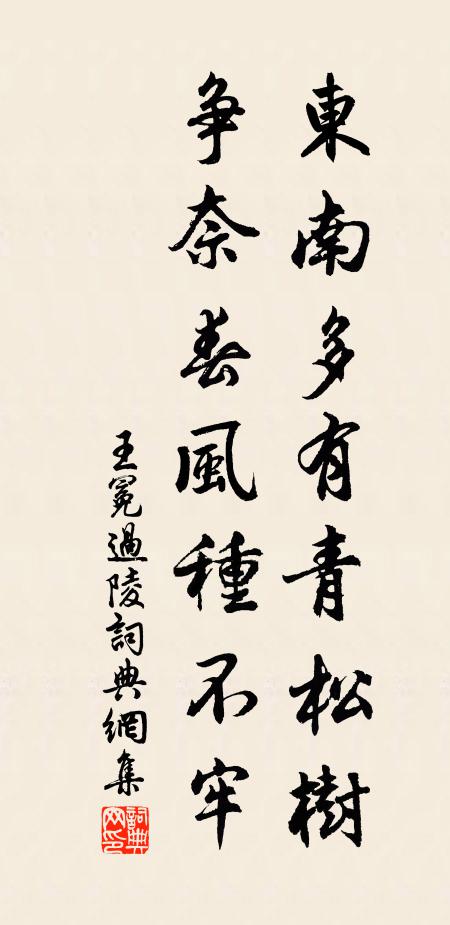 東南多有青松樹
争奈春風種不牢
王冕過陵詞典網集
詞典
网印